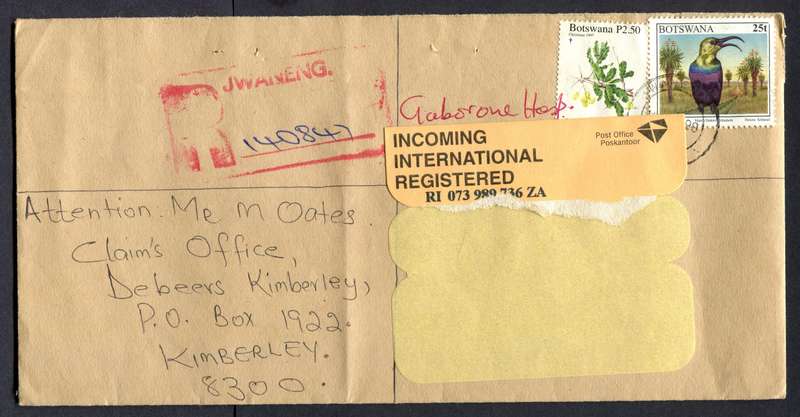 Botswana P2.50
Christmas 1997
BOTSWANA 25t
JWANENG.
R
140847
Gaborone Hosp.
INCOMING
INTERNATIONAL
REGISTERED
RI 073 989 736 ZA
Post Office
Poskantoor
Attention. Mr M Oates.
Claim's Office,
Debeers Kimberley,
P.O. Box 1922.
KIMBERLEY.
8300.